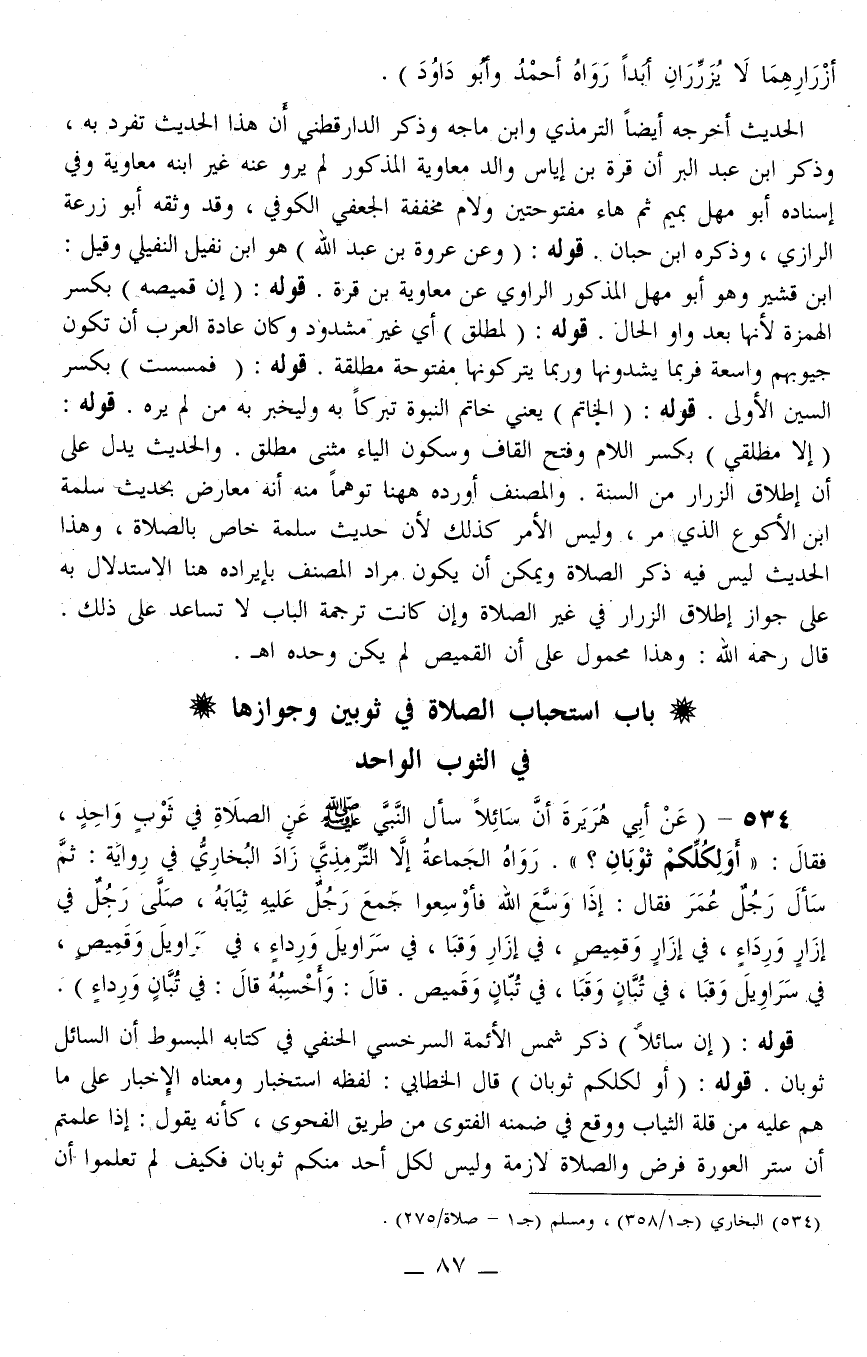 أزْرَارِهِمَا لَا يُزَرِّرَانِ أبَداً رَوَاهُ أحمْدُ وأبُو دَاوُدَ ) .
الحديث أخرجه أيضاً الترمذي وابن ماجه وذكر الدارقطني أن هذا الحديث تفرد به ،
وذكر ابن عبد البر أن قرة بن إياس والد معاوية المذكور لم يرو عنه غير ابنه معاوية وفي
إسناده أبو مهل بميم ثم هاء مفتوحتين ولام مخففة الجعفي الكوفي ، وقد وثقه أبو زرعة
الرازي ، وذكره ابن حبان . قوله : ( وعن عروة بن عبد الله ) هو ابن نفيل النفيلي وقيل :
ابن قشير وهو أبو مهل المذكور الراوي عن معاوية بن قرة . قوله : ( إن قميصه ) بكسر
الهمزة لأنها بعد واو الحال . قوله : ( لمطلق ) أي غير مشدود وكان عادة العرب أن تكون
جيوبهم واسعة فربما يشدونها وربما يتركونها مفتوحة مطلقة . قوله : ( فمسست ) بكسر
السين الأولى . قوله : ( الخاتم ) يعني خاتم النبوة تبركاً به وليخبر به من لم يره . قوله :
( إلا مطلقي ) بكسر اللام وفتح القاف وسكون الياء مثنى مطلق . والحديث يدل على
أن إطلاق الزرار من السنة . والمصنف أورده ههنا توهماً منه أنه معارض بحديث سلمة
ابن الأكوع الذي مر ، وليس الأمر كذلك لأن حديث سلمة خاص بالصلاة ، وهذا
الحديث ليس فيه ذكر الصلاة ويمكن أن يكون مراد المصنف بإيراده هنا الاستدلال به
على جواز إطلاق الزرار في غير الصلاة وإن كانت ترجمة الباب لا تساعد على ذلك .
قال رحمه الله : وهذا محمول على أن القميص لم يكن وحده اهـ .
باب استحباب الصلاة في ثوبين وجوازها
في الثوب الواحد
٥٣٤ – ( عَنْ أبي هُرَيَرةَ أنَّ سَائِلاً سأل النَّبيَّ ﷺ عَنِ الصلَاةِ في ثَوْبٍ وَاحِدٍ ،
فقالَ : « أَوَلِكُلِّكمْ ثوْبَانِ ؟ » . رَوَاهُ الجَماعةُ إلَّا التِّرْمِذِيَّ زَادَ البُخاريُّ في رِوايَة : ثمَّ
سَألَ رَجُلٌ عُمَرَ فقال : إذَا وَسَّعَ الله فأوْسِعوا جَمعَ رَجُلٌ عَليهِ ثِيَابَهُ ، صَلَّى رَجُلٌ في
إزَارٍ وَرِدَاءٍ ، في إزَارٍ وَقميصٍ ، في إزَارٍ وَقبَا ، في سَرَاويلَ وَرِداءٍ ، في سَرَاويلَ وَقَميصٍ ،
في سَرَاوِيلَ وَقبَا ، في تُبَّانٍ وَقَبَا ، في تُبّانٍ وَقَميص . قالَ : وَأَحْسِبُهُ قالَ : في تُبَّانٍ وَرِداءٍ ) .
قوله : ( إن سائلاً ) ذكر شمس الأئمة السرخسي الحنفي في كتابه المبسوط أن السائل
ثوبان . قوله : ( أو لكلكم ثوبان ) قال الخطابي : لفظه استخبار ومعناه الإخبار على ما
هم عليه من قلة الثياب ووقع في ضمنه الفتوى من طريق الفحوى ، كأنه يقول : إذا علمتم
أن ستر العورة فرض والصلاة لازمة وليس لكل أحد منكم ثوبان فكيف لم تعلموا أن
(٥٣٤) البخاري (جـ٣٥٨/١) ، ومسلم (جـ١ – صلاة/٢٧٥) .
— ٨٧ —